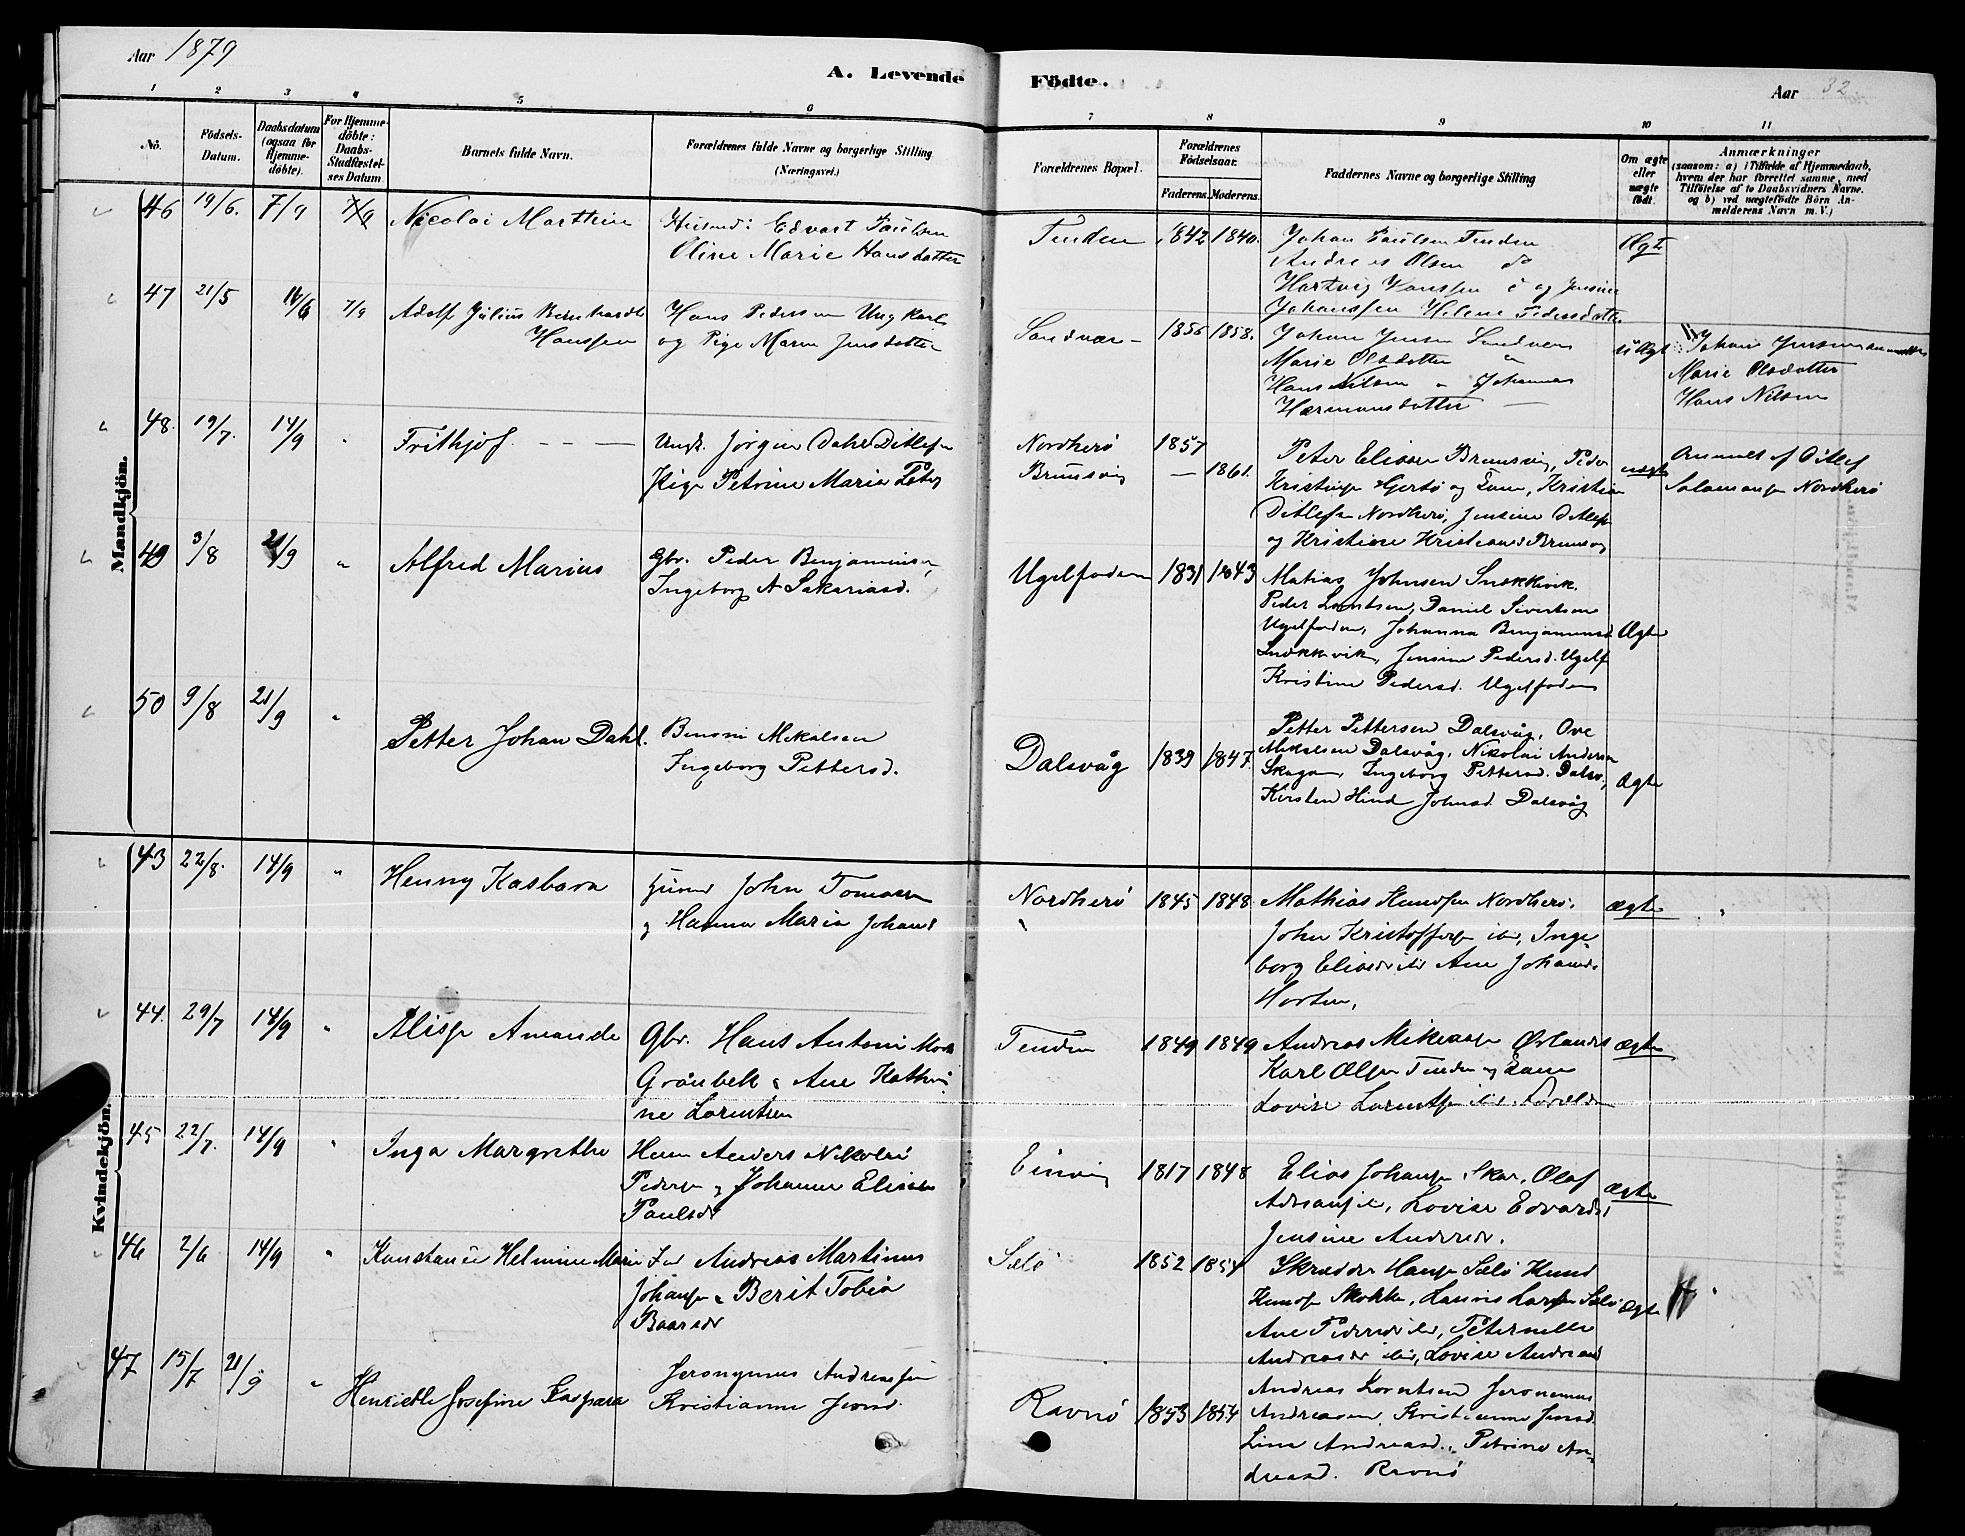 Aar 1879
A. Levende Födte.
Aar 32
1 2 3 4 5 6 7 8 9 10 11
No.
Födsels-Datum.
Daabsdatum (ogsaa for Hjemmedöbte).
For Hjemmedöbte: Daabs-Stadfæstelses Datum
Barnets fulde Navn.
Forældrenes fulde Navne og borgerlige Stilling (Næringsvei.)
Forældrenes Bopæl.
Forældrenes Födselsaar.
Faderens. Moderens.
Faddernes Navne og borgerlige Stilling
Om ægte eller uægte födt.
Anmærkninger
(saasom: a) i Tilfælde af Hjemmedaab, hvem der har forrettet samme, med Tilföielse af to Daabsvidners Navne. og b) ved uægtefödte Börn Anmelderens Navn m. V.)
Mandkjön.
46 19/6. 7/9 7/9 Nicolai Marthin
Edvart Paulsen
Oline Marie Hansdatter
Tenden 1842 1840.
Johan Paulsen Tenden
Andreas Olsen do
Hartvig Hanssen do og Jensine
Johanssen Helene Pedersdatter
Ægt.
47 21/5 16/6 7/9 Adolf Julius Bernhardt
Hanssen
Hans Pedersen Ungkarl
og Pige Maren Jensdatter
Sandvær 1856 1858.
Johan Jensen Sandvær
Marie Olsdatter
Hans Nilsen Johannes
Hermansdatter
uÆgt
Johan Jensen
Marie Olsdatter
Hans Nilsen
48. 19/7. 14/9 " Frithjof
Ungk. Jörgen Dahl Ditlefsen
Pige Petrine Maria Peters
Nordherö 1857
Brunsvig 1861.
Peter Eliasen Brunsvig, Peder
Kristensen Hjertö og Kristian
Ditlefsen Nordherö, Jensine Ditlefs
og Kristiane Kristians Brunsvig
uægte
Anmeldt af Ditlef
Salamonsen Nordherö
49 3/8 21/9 " Alfred Marius
Gbr. Peder Benjaminsen,
Ingeborg A Sakariasd.
Ugelfoden 1831 1843
Matias Johnsen Snekkvik.
Peder Lorntsen, Daniel Sivertsen
Ugelfoden, Johanna Benjaminsd.
Snekkvik, Jensine Pedersd. Ugelf
Kristine Pedersd. Ugelfoden
Ægte
50 9/8 21/9 " Petter Johan Dahl.
Benoni Mikalsen
Ingeborg Pettersd.
Dalsvåg 1839 1847.
Petter Pettersen Dalsvåg, Ove
Mikalsen Dalsvåg, Nikolai Andersen
Skagen, Ingeborg Pettersd. Dalsv,
Kirsten Hind Johnsd Dalsvåg
Ægte
Kvindekjön.
43 22/8. 14/9 " Henny Kasbara
John Tomassen
og Hanna Maria Johans
Nordherö 1845 1848
Mathias Knudsen Nordherö.
John Kristoffersen ibd, Inge
borg Eliasdr ibd Ane Johansdr
Horten,
ægte "
44. 29/7 14/9 " Alise Amanda
Gbr. Hans Antoni
Grönbek & Ane Kathri
ne Lorentsen
Tenden 1849 1849
Andreas Mikalsen
Karl Olsen Tenden og
Lovise Lorentsen
ægte
45 22/7. 14/9 " Inga Margrethe
Anders Nikolai
Pedersen og Johanne Elisa
Paulsdr
Einvig 1817 1848
Elias Johansen Skar, Olaf
Adriansen, Lovise Edvards,
Jensine Andersdr.
ægte
46 2/6 14/9 " Konstanse Helmine Marie
Andreas Martinus
Johansen & Berit Tobia
Baarsdr
Selö 1852 1854
Skrædder Hansen Selö Knud
Knudsen Skokke, Larsen Selö
Ane Pedersdr ibd, Peternelle
Andreasdr ibd, Lovise Andreasd
ægte
47 15/7 21/9 " Henriette Josefine Kaspara
Jeronymus Andreassen
Kristianne Jensd.
Ravnö 1853 1854
Andreas Lorentsen Jeronemus
Andreasen, Kristianne Jensd
Lina Andreasd., Petrine An-
dreasd. Ravnö